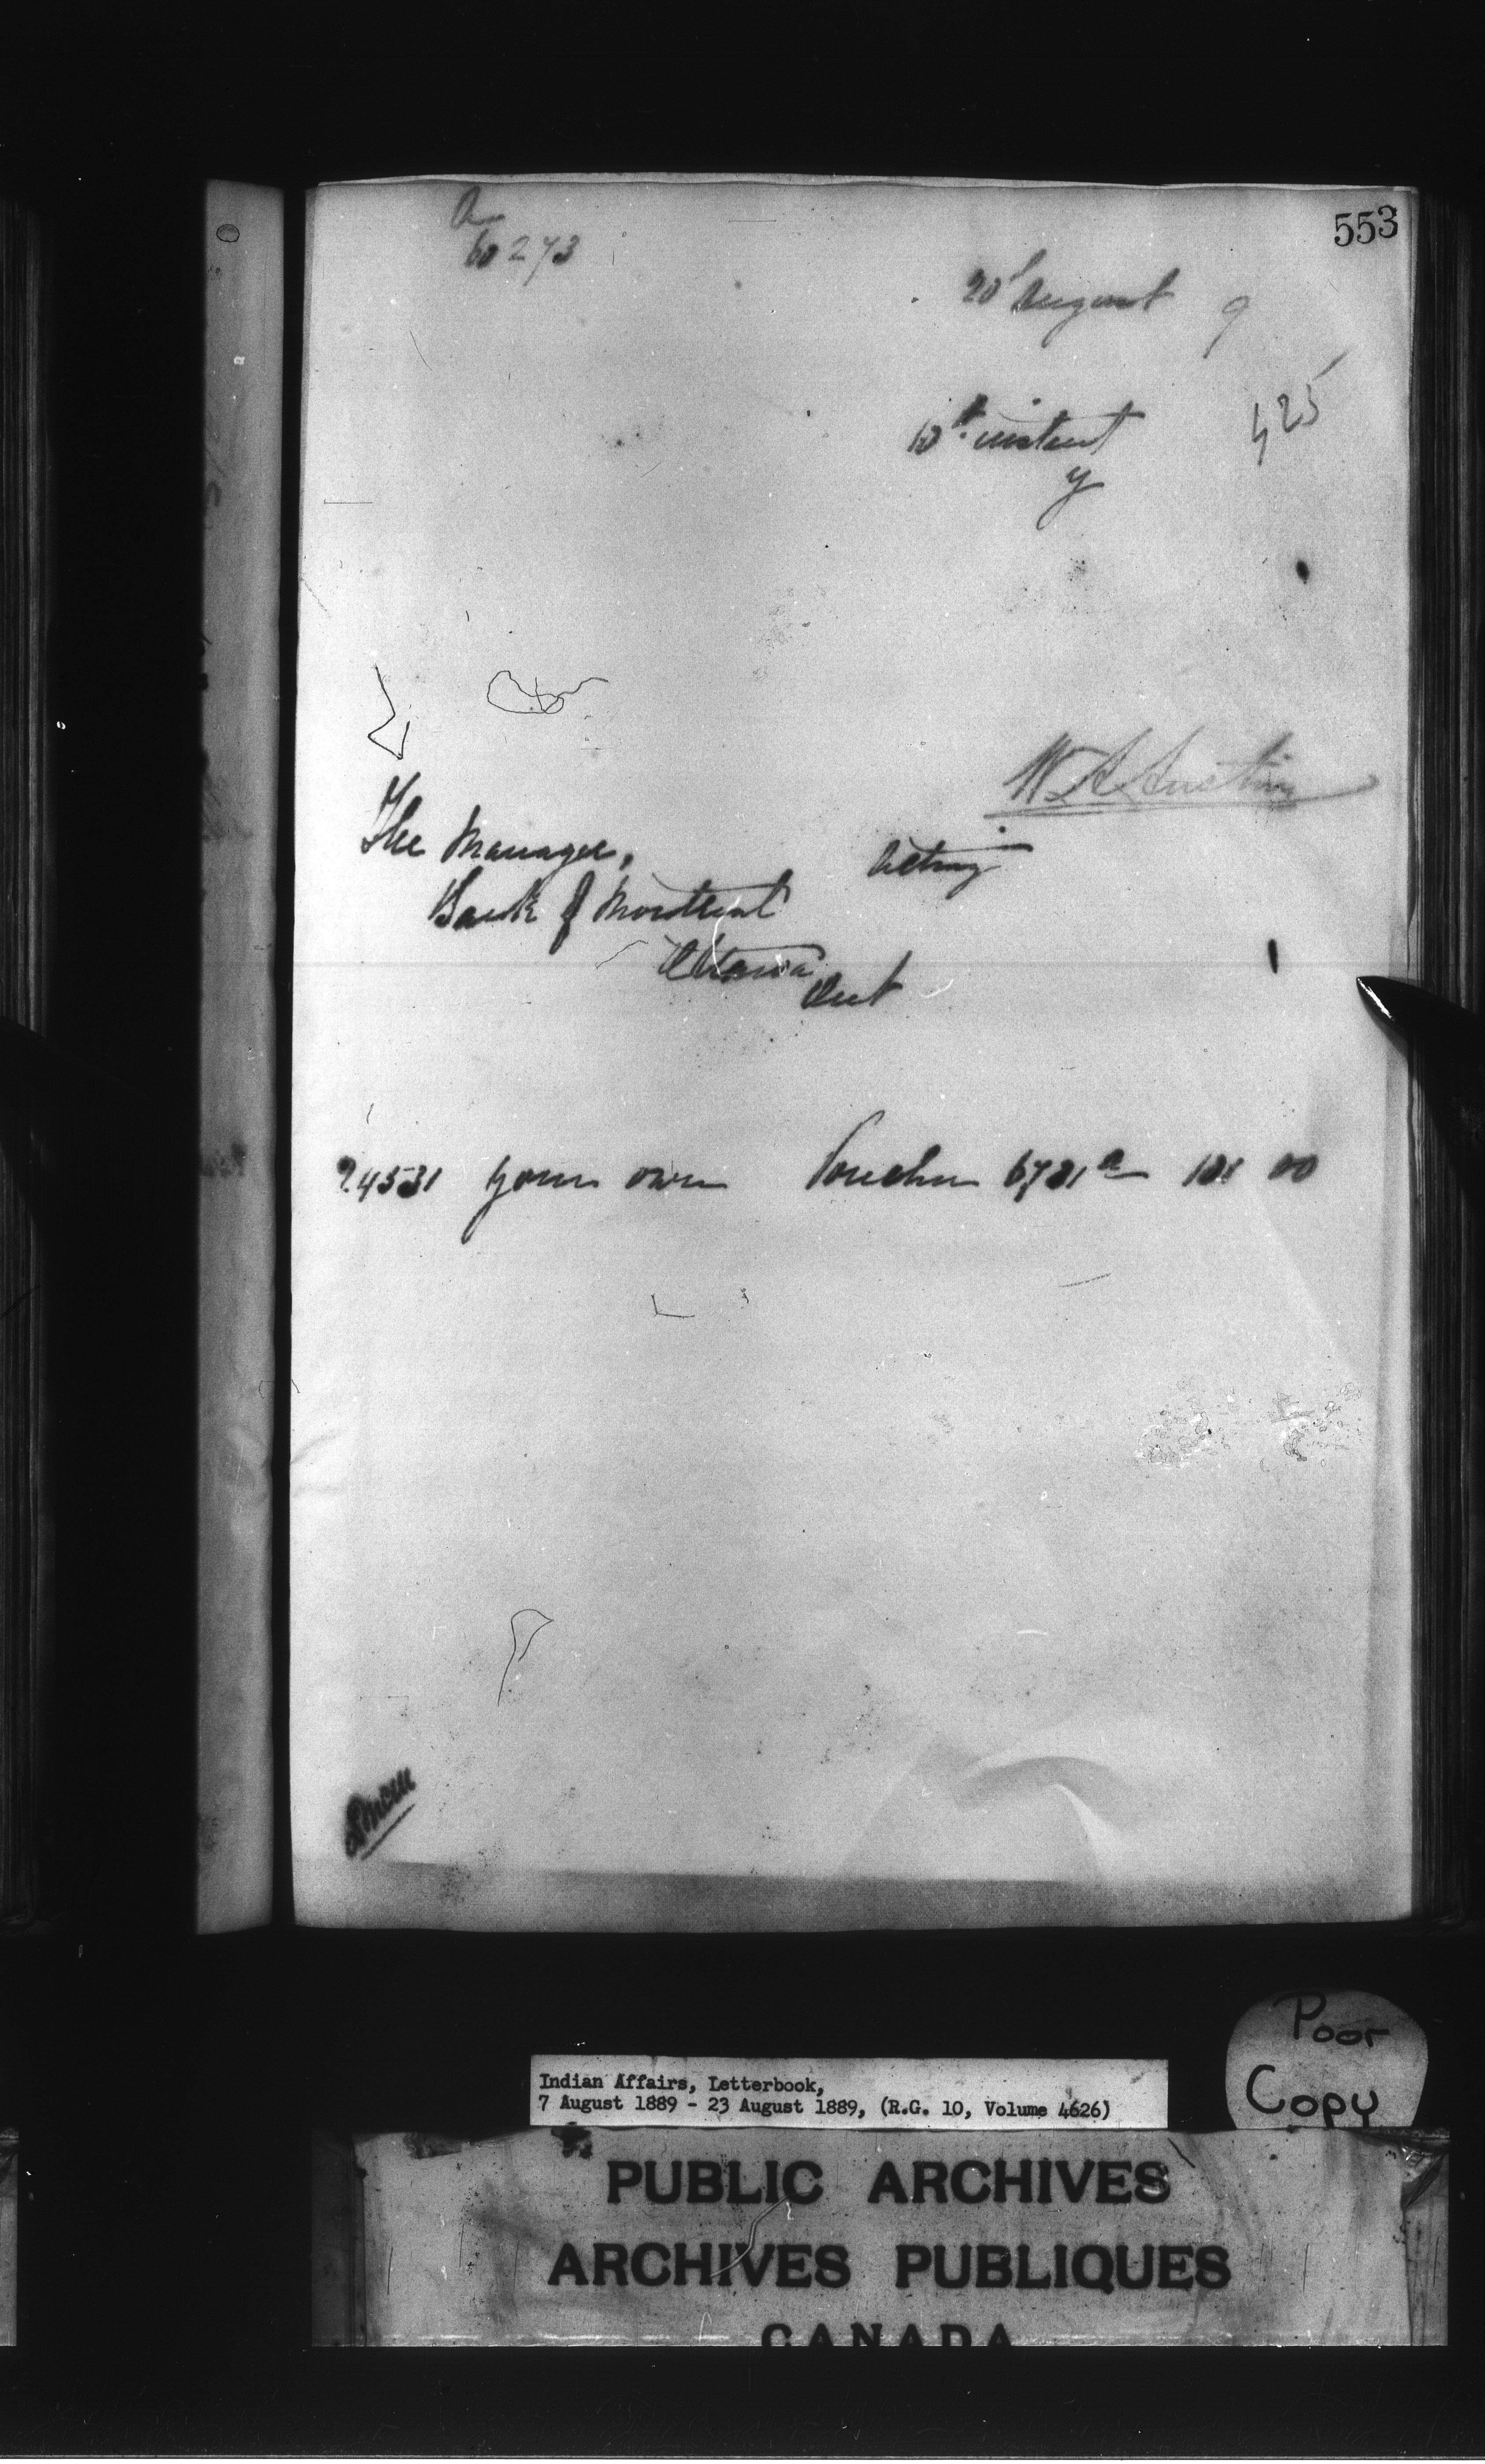 553
a
60273
20 August 9
10th instant 425
y
W A Austin
The Manager,
Acting
Bank of Montreal
Ottawa
Ont
24531 your own Voucher 6781 a 101 00
Indian Affairs, Letterbook,
7 August 1889 - 23 August 1889, (R.G. 10, Volume 4626)
Poor
Copy
PUBLIC ARCHIVES
ARCHIVES PUBLIQUES
CANADA